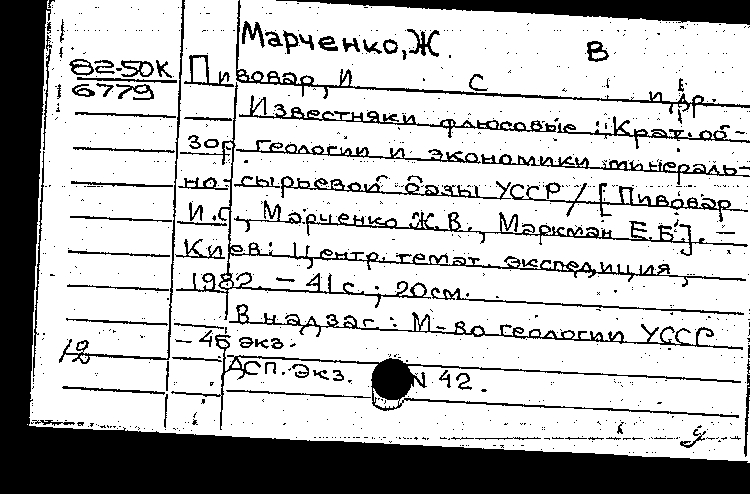 Марченко, Ж. В
82-50К Пивовар, И С и др.
6779
Известняки флюсовые : Крат. об-
зор геологии и экономики минераль-
но-сырьевой базы УССР / [Пивовар
И.С., Марченко Ж.В., Маркман Е.Б.]. –
Киев: Центр. темат. экспедиция,
1982. – 41 с. ; 20 см.
В надзаг : М-во геологии УССР
12 – 45 экз.
ДСП. Экз. N 42.